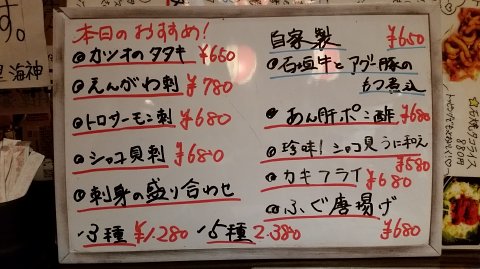 本日のおすすめ!
カツオのタタキ ¥660
えんがわ刺 ¥780
トロサーモン刺 ¥680
シャコ貝刺 ¥680
刺身の盛り合わせ
3種 ¥1.280 5種 2.380
自家製 ¥650
石垣牛とアグー豚の
もつ煮込
あん肝ポン酢 ¥680
珍味!シャコ貝うに和え
¥580
カキフライ ¥680
ふぐ唐揚げ
¥680
す。
海神
880円